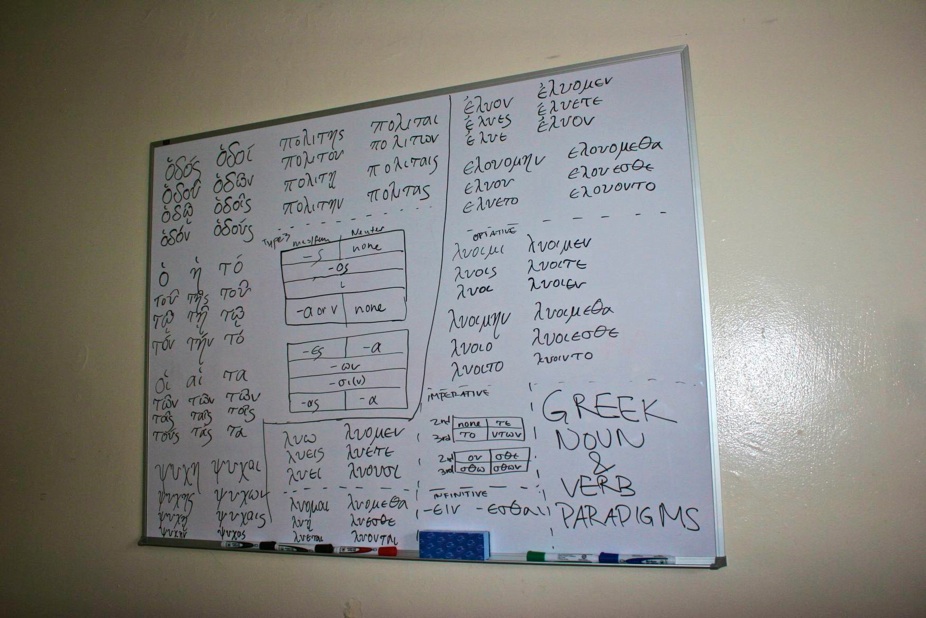 ὁδός ὁδοί
ὁδοῦ ὁδῶν
ὁδῷ ὁδοῖς
ὁδόν ὁδούς
πολιτης πολιται
πολιτου πολιτων
πολιτῃ πολιταις
πολιτην πολιτας
ὁ ἡ τό
τοῦ τῆς τοῦ
τῷ τῇ τῷ
τόν τήν τό
οἱ αἱ τα
τῶν τῶν τῶν
τοῖς ταῖς τοῖς
τούς τας τα
ψυχη ψυχαι
ψυχης ψυχων
ψυχῃ ψυχαις
ψυχην ψυχος
TYPE 3 masc/fem Neuter
-ς none
-ος
ι
-α or ν none
-ες -α
-ων
-σι(ν)
-ας -α
λυω λυομεν
λυεις λυετε
λυει λυουσι
λυομαι λυομεθα
λυῃ λυεσθε
λυεται λυονται
ἐλυον ἐλυομεν
ἐλυες ἐλυετε
ἐλυε ἐλυον
ελουομην ελουομεθα
ελυου ελουεσθε
ελυετο ελουοντο
OPTATIVE
λυοιμι λυοιμεν
λυοις λυοιτε
λυοι λυοιεν
λυοιμην λυοιμεθα
λυοιο λυοιεσθε
λυοιτο λυοιντο
IMPERATIVE
2nd none τε
3rd το ντων
2nd ου σθε
3rd σθω σθων
INFINITIVE
-ειν -εσθαι
GREEK
NOUN
&
VERB
PARADIGMS